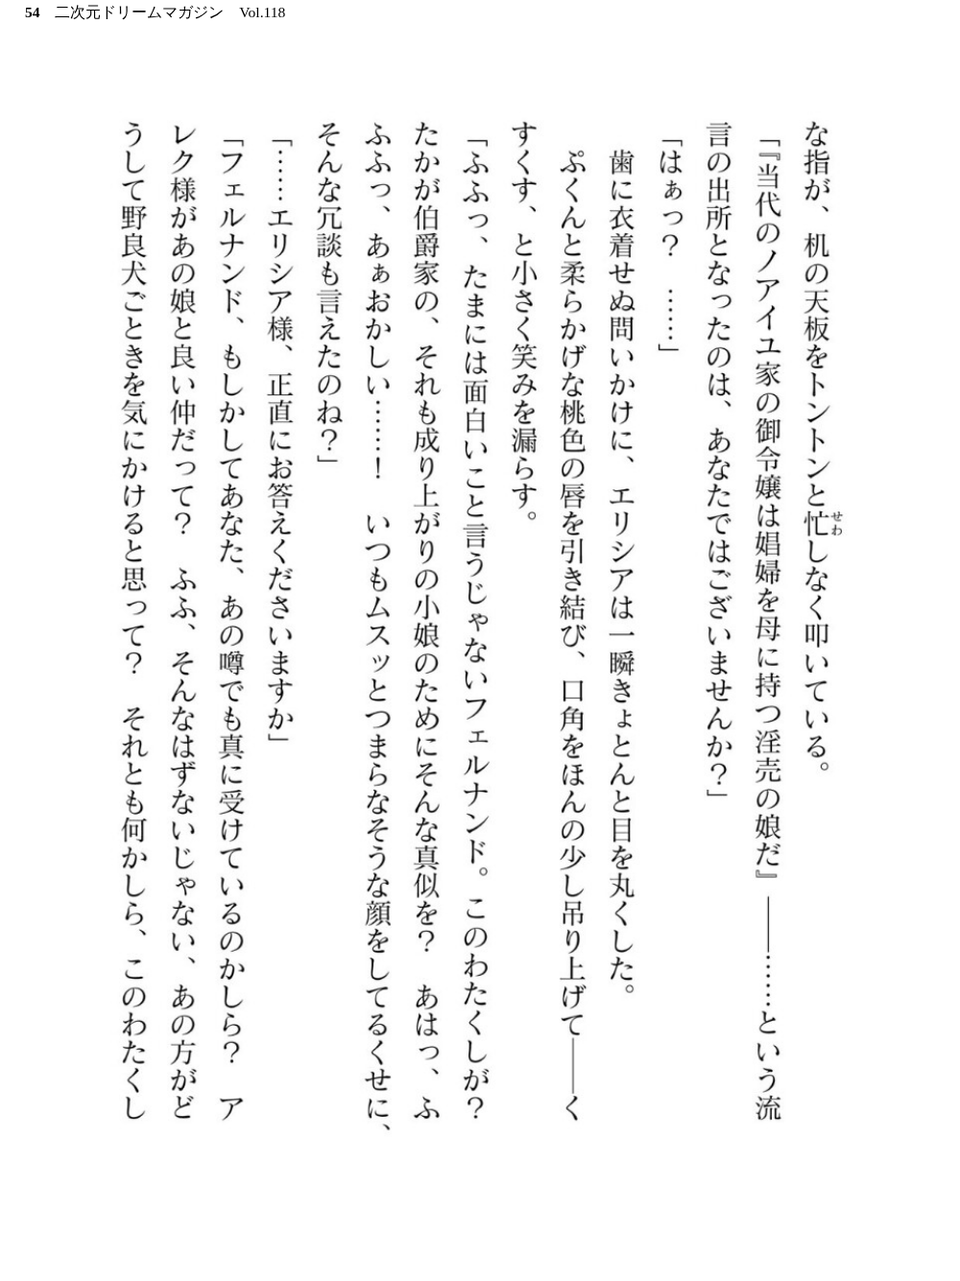 54 二次元ドリームマガジン Vol.118
な指が、机の天板をトントンと忙しなく叩いている。
せわ
「『当代のノアイユ家の御令嬢は娼婦を母に持つ淫売の娘だ』――……という流
言の出所となったのは、あなたではございませんか？」
「はぁっ？　……」
　歯に衣着せぬ問いかけに、エリシアは一瞬きょとんと目を丸くした。
　ぷくんと柔らかげな桃色の唇を引き結び、口角をほんの少し吊り上げて――く
すくす、と小さく笑みを漏らす。
「ふふっ、たまには面白いこと言うじゃないフェルナンド。このわたくしが？
たかが伯爵家の、それも成り上がりの小娘のためにそんな真似を？　あはっ、ふ
ふふっ、あぁおかしい……！　いつもムスッとつまらなそうな顔をしてるくせに、
そんな冗談も言えたのね？」
「……エリシア様、正直にお答えくださいますか」
「フェルナンド、もしかしてあなた、あの噂でも真に受けているのかしら？　ア
レク様があの娘と良い仲だって？　ふふ、そんなはずないじゃない、あの方がど
うして野良犬ごときを気にかけると思って？　それとも何かしら、このわたくし